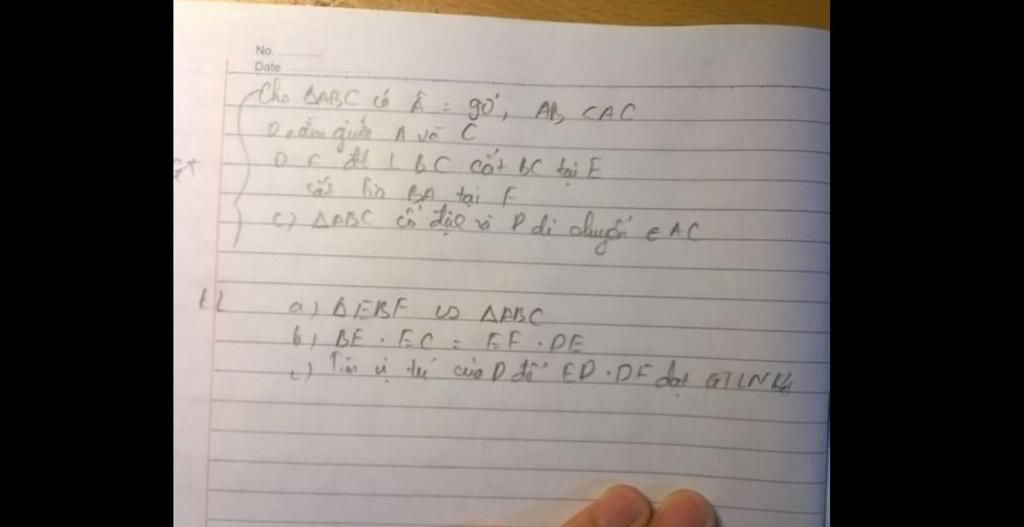 No.
Date
Cho ΔABC có Â = 90°, AB < AC
D nằm giữa A và C
D c đt ⊥ BC cắt BC tại E
cắt tia BA tại F
c) ΔABC cố định và D di chuyển ∈ AC
GT
KL
a) ΔEBF ∽ ΔABC
b) BE . EC = EF . DE
c) Tìm vị trí của D để ED . DF đạt GTLN